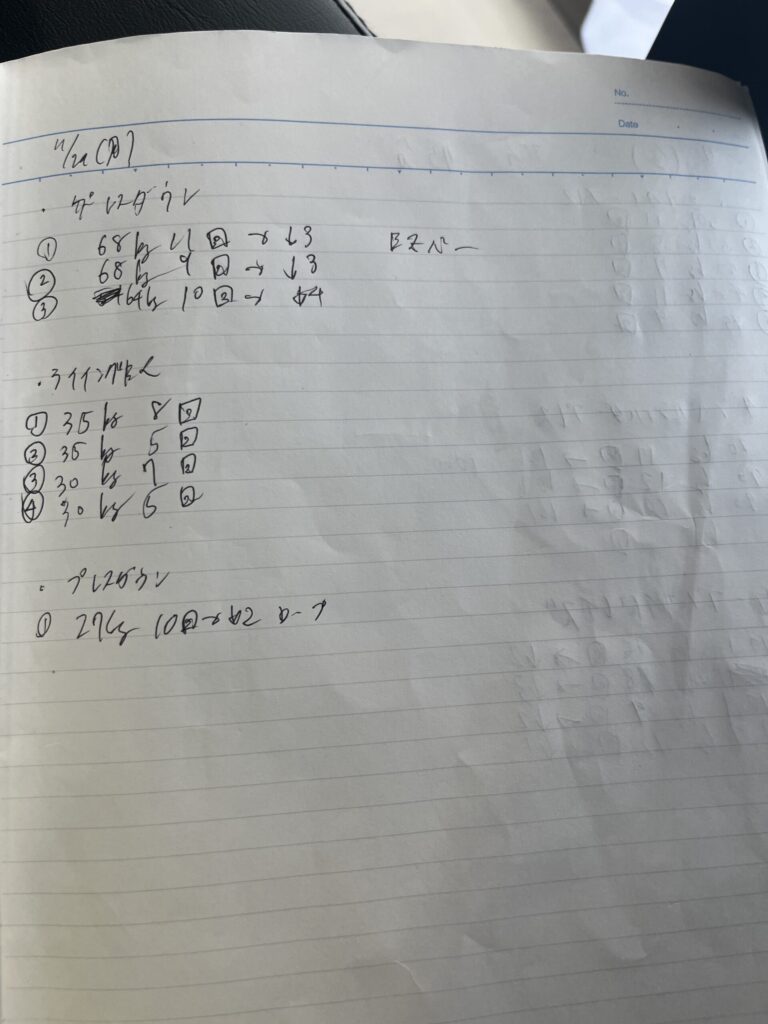 No.
Date
11/24(月)
・プレスダウン
① 68kg 11回→↓3 EZバー
② 68kg 9回→↓3
③ 64kg 10回→↓4
・ライイングEX
① 35kg 8回
② 35kg 5回
③ 30kg 7回
④ 30kg 5回
・プレスダウン
① 27kg 10回→↓2 ロープ